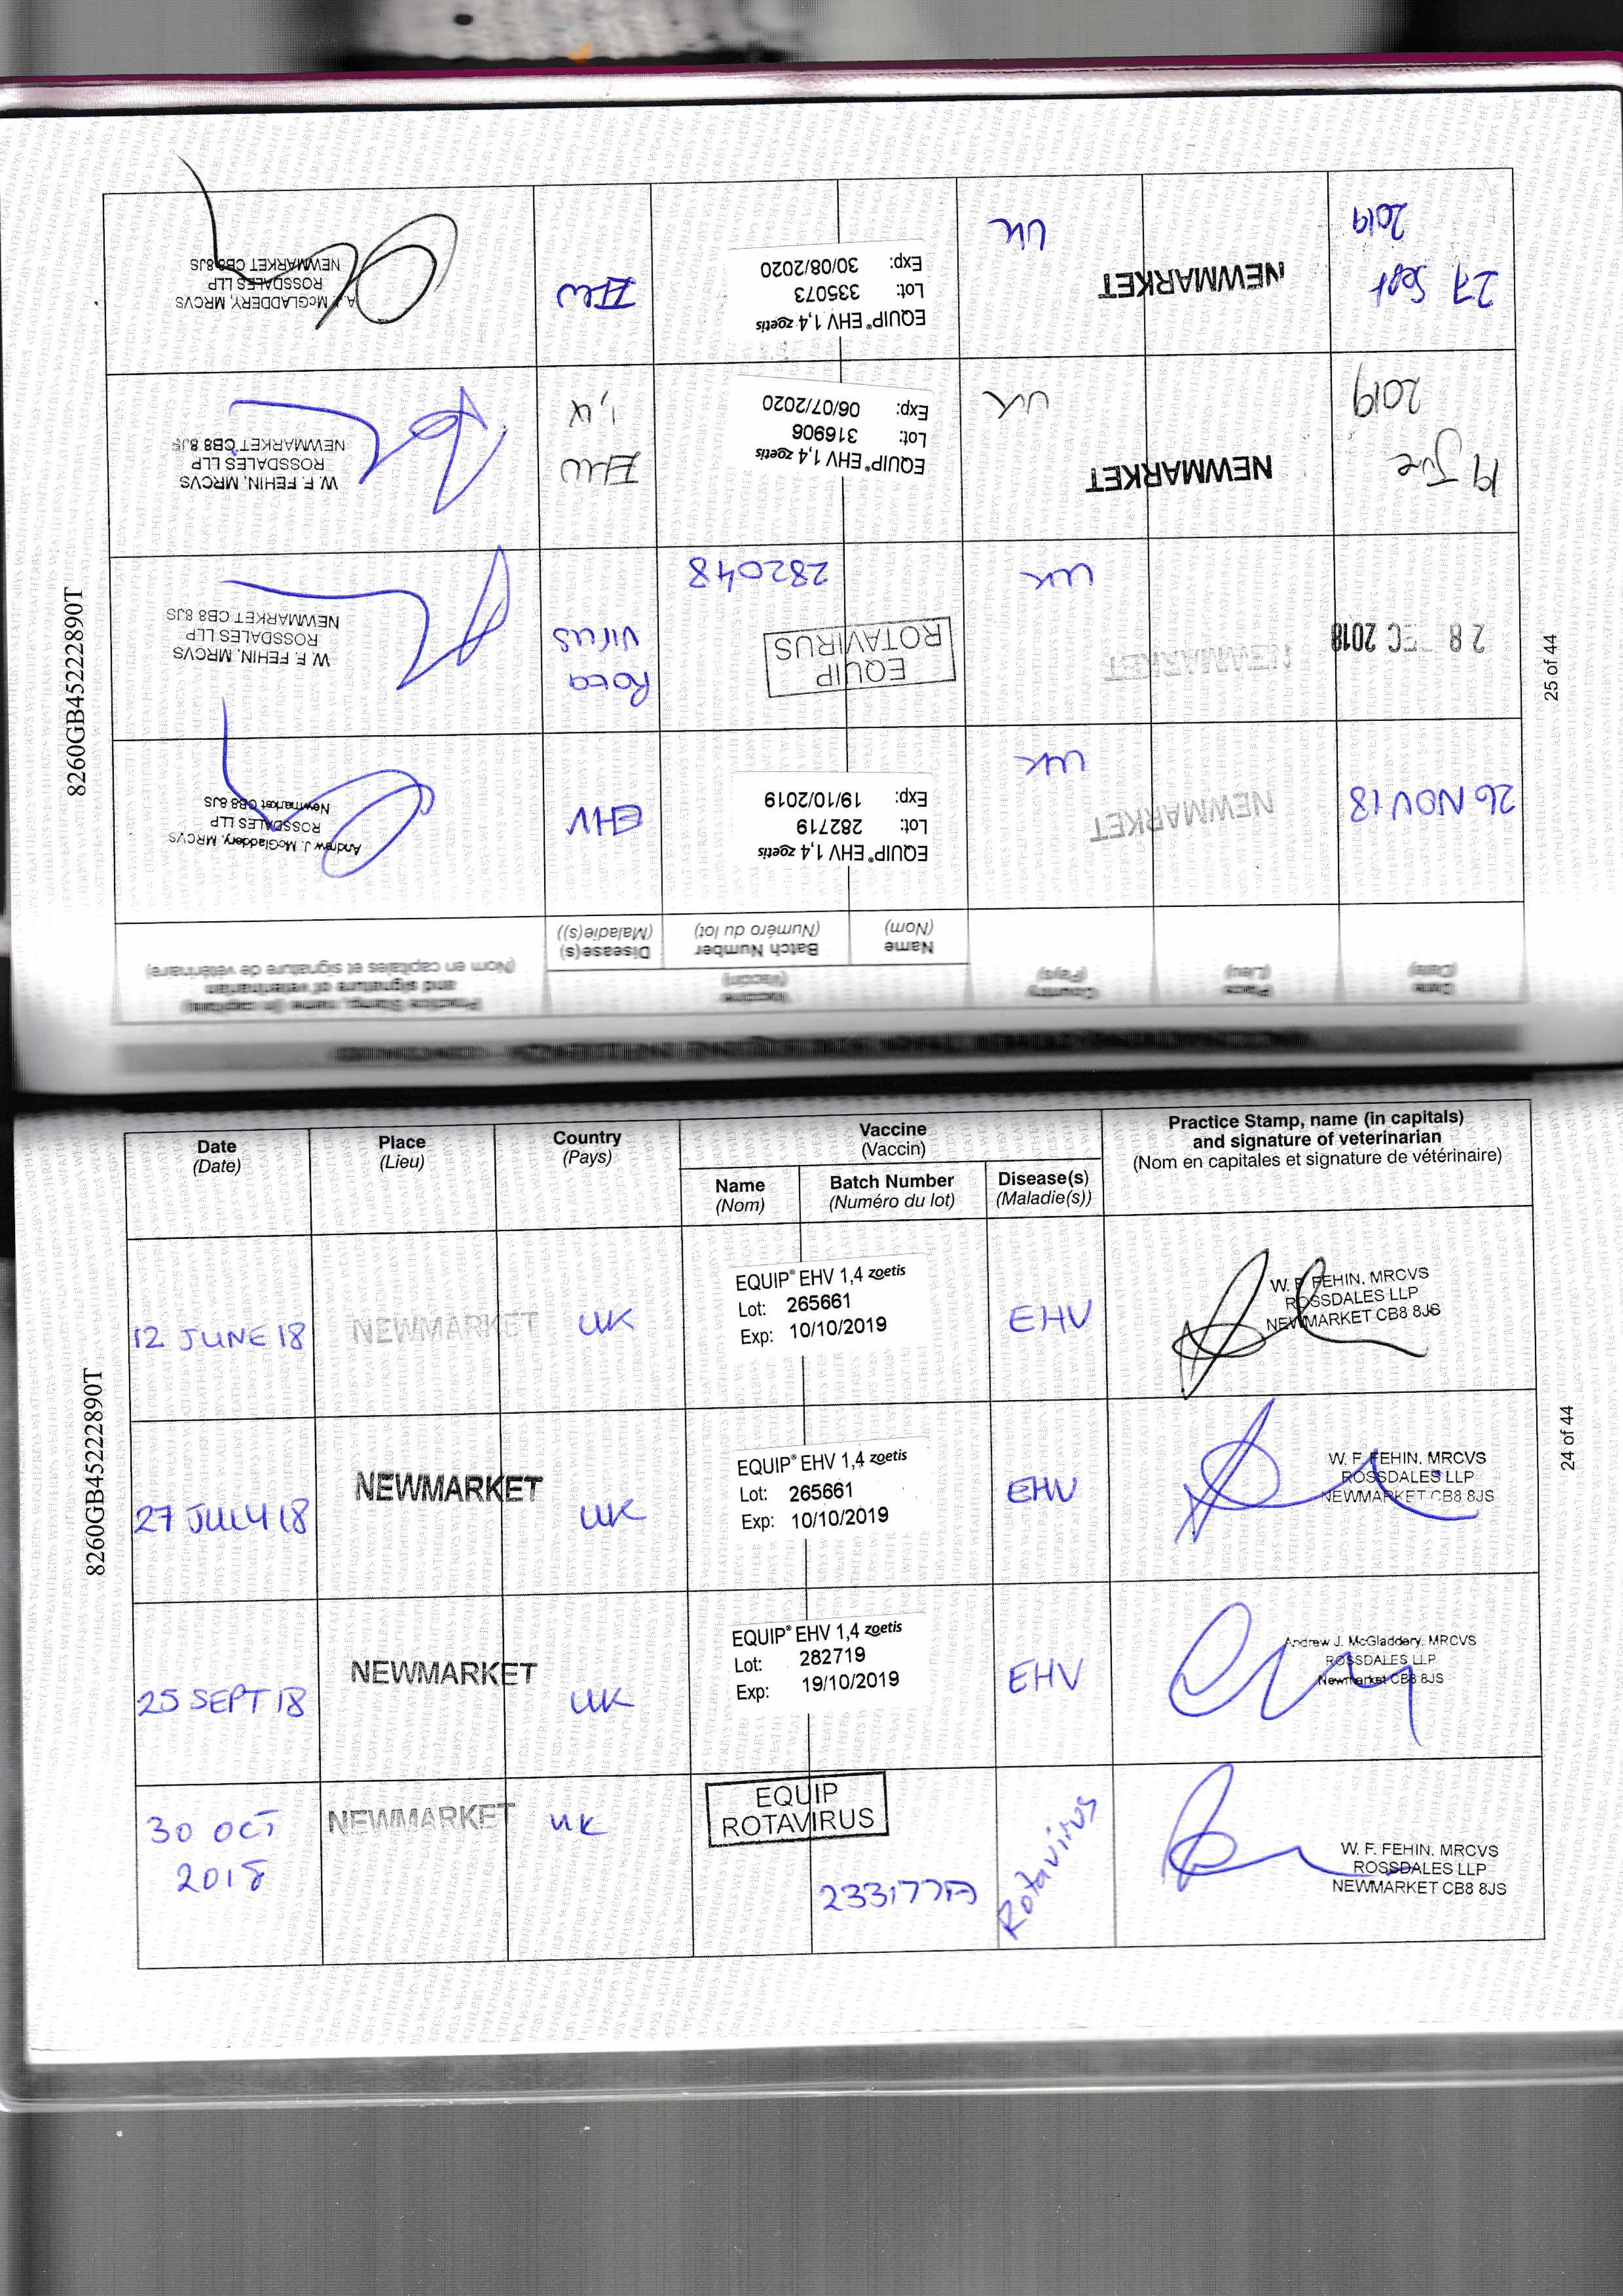 8260GB45222890T
24 of 44
Date
(Date)
Place
(Lieu)
Country
(Pays)
Vaccine
(Vaccin)
Name
(Nom)
Batch Number
(Numéro du lot)
Disease(s)
(Maladie(s))
Practice Stamp, name (in capitals)
and signature of veterinarian
(Nom en capitales et signature de vétérinaire)
12 JUNE 18
NEWMARKET
UK
EQUIP® EHV 1,4 zoetis
Lot: 265661
Exp: 10/10/2019
EHV
W. F. FEHIN, MRCVS
ROSSDALES LLP
NEWMARKET CB8 8JS
27 JULY 18
NEWMARKET
UK
EQUIP® EHV 1,4 zoetis
Lot: 265661
Exp: 10/10/2019
EHV
W. F. FEHIN, MRCVS
ROSSDALES LLP
NEWMARKET CB8 8JS
25 SEPT 18
NEWMARKET
UK
EQUIP® EHV 1,4 zoetis
Lot: 282719
Exp: 19/10/2019
EHV
Andrew J. McGladdery, MRCVS
ROSSDALES LLP
Newmarket CB8 8JS
30 OCT
2018
NEWMARKET
UK
EQUIP
ROTAVIRUS
Rotavirus
W. F. FEHIN, MRCVS
ROSSDALES LLP
NEWMARKET CB8 8JS
8260GB45222890T
25 of 44
Date
(Date)
Place
(Lieu)
Country
(Pays)
Vaccine
(Vaccin)
Name
(Nom)
Batch Number
(Numéro du lot)
Disease(s)
(Maladie(s))
Practice Stamp, name (in capitals)
and signature of veterinarian
(Nom en capitales et signature de vétérinaire)
26 NOV 18
NEWMARKET
UK
EQUIP® EHV 1,4 zoetis
Lot: 282719
Exp: 19/10/2019
EHV
Andrew J. McGladdery, MRCVS
ROSSDALES LLP
Newmarket CB8 8JS
28 DEC 2018
NEWMARKET
UK
EQUIP
ROTAVIRUS
282048
Rota
virus
W. F. FEHIN, MRCVS
ROSSDALES LLP
NEWMARKET CB8 8JS
19
2019
NEWMARKET
UK
EQUIP® EHV 1,4 zoetis
Lot: 316906
Exp: 06/07/2020
EHV
1,4
W. F. FEHIN, MRCVS
ROSSDALES LLP
NEWMARKET CB8 8JS
27 Sept
2019
NEWMARKET
UK
EQUIP® EHV 1,4 zoetis
Lot: 335073
Exp: 30/08/2020
EHV
A. J. McGLADDERY, MRCVS
ROSSDALES LLP
NEWMARKET CB8 8JS